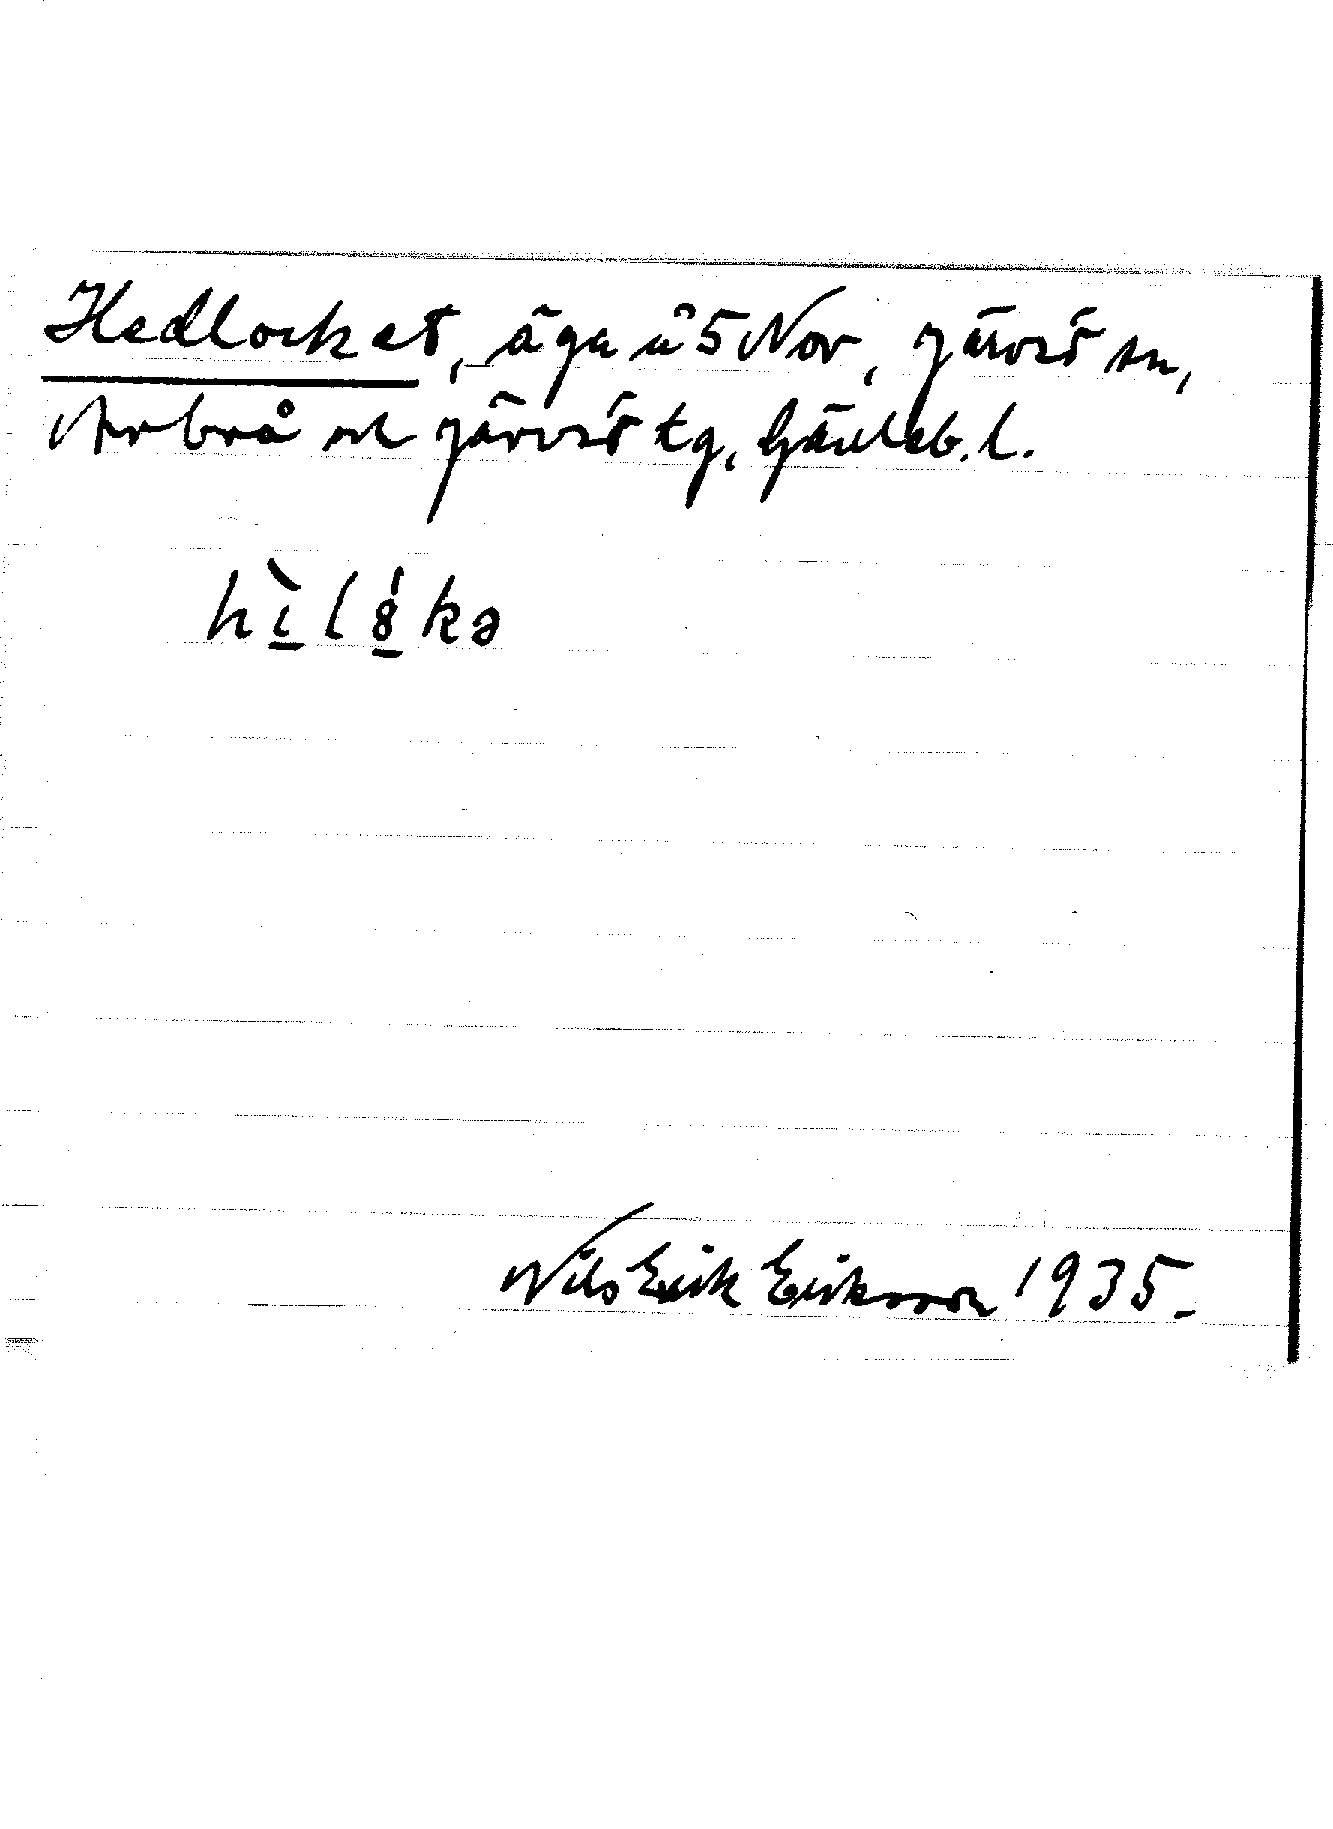 Hedlocket, äga å 5 Nor, Järvsö sn,
Arbrå och Järvsö tg, Gävleb. l.
hìlȣ́kə
Nils Erik Eriksson 1935.